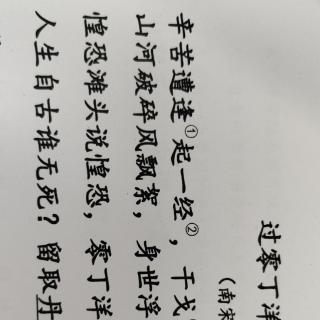 过零丁洋
（南宋
辛苦遭逢①起一经②，干戈
山河破碎风飘絮，身世浮
惶恐滩头说惶恐，零丁洋
人生自古谁无死？留取丹